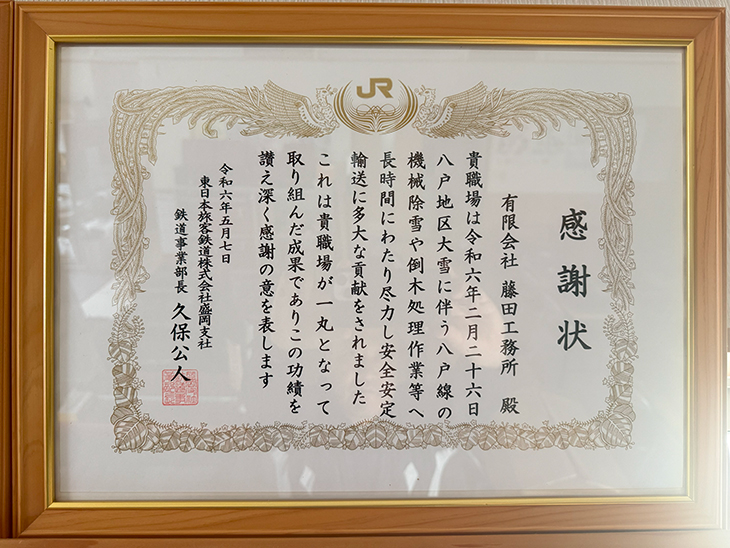 JR
感謝状
有限会社 藤田工務所 殿
貴職場は令和六年二月二十六日
八戸地区大雪に伴う八戸線の
機械除雪や倒木処理作業等へ
長時間にわたり尽力し安全安定
輸送に多大な貢献をされました
これは貴職場が一丸となって
取り組んだ成果でありこの功績を
讃え深く感謝の意を表します
令和六年五月七日
東日本旅客鉄道株式会社盛岡支社
鉄道事業部長 久保公人